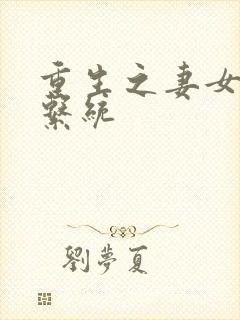 重生之妻女
繫統
劉夢夏